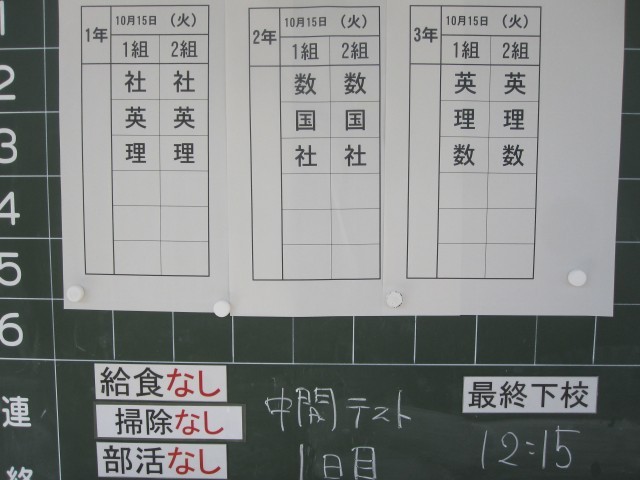 1
2
3
4
5
6
連
終
1年 10月15日 （火）
1組 2組
社 社
英 英
理 理
2年 10月15日 （火）
1組 2組
数 数
国 国
社 社
3年 10月15日 （火）
1組 2組
英 英
理 理
数 数
給食なし
掃除なし
部活なし
中間テスト
1日目
最終下校
12:15